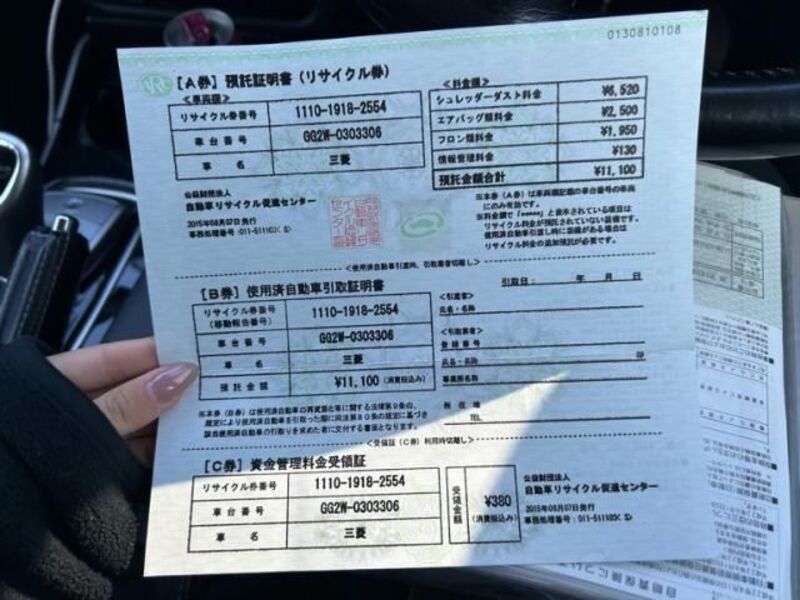 0130810108
[A券] 預託証明書(リサイクル券)
<車両欄>
リサイクル券番号 1110-1918-2554
車台番号 GG2W-0303306
車名 三菱
<料金欄>
シュレッダーダスト料金 ¥6,520
エアバッグ類料金 ¥2,500
フロン類料金 ¥1,950
情報管理料金 ¥130
預託金額合計 ¥11,100
公益財団法人
自動車リサイクル促進センター
2015年08月07日発行
※本券(A券)は車両欄記載の車台番号の車両
にのみ有効です。
※料金欄で「*****」と表示されている項目は
リサイクル料金が預託されていない装備です。
使用済自動車引渡し時に装備がある場合は
リサイクル料金の追加預託が必要です。
<使用済自動車引渡時、引取業者切離し>
[B券] 使用済自動車引取証明書
リサイクル券番号 1110-1918-2554
(移動報告番号)
車台番号 GG2W-0303306
車名 三菱
預託金額 ¥11,100 (消費税込み)
引取日: 年 月 日
<引渡者>
氏名・名称
<引取業者>
登録番号
氏名・名称 印
事業所名称
所在地
TEL
※本券(B券)は使用済自動車の再資源化等に関する法律第9条の
規定により使用済自動車を引取った際に同法第80条の規定に基づき
該当使用済自動車の引取りを求めた者に交付する書面となります。
<受領証(C券)利用時切離し>
[C券] 資金管理料金受領証
リサイクル券番号 1110-1918-2554
車台番号 GG2W-0303306
車名 三菱
受領金額 ¥380
(消費税込み)
公益財団法人
自動車リサイクル促進センター
2015年08月07日発行